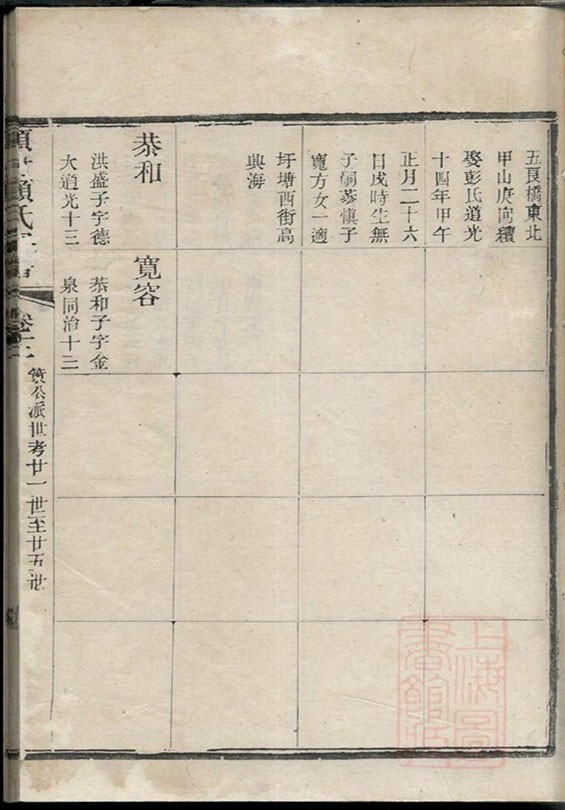 五良橋東北
甲山庚向續
娶彭氏道光
十四年甲午
正月二十六
日戌時生無
子嗣恭慎子
寬方女一適
圩塘西街高
興海
恭和
洪盛子字德
大道光十三
寬容
恭和子字金
泉同治十三
卷十二
簣公派世考廿一世至廿五世
上海圖
書館藏